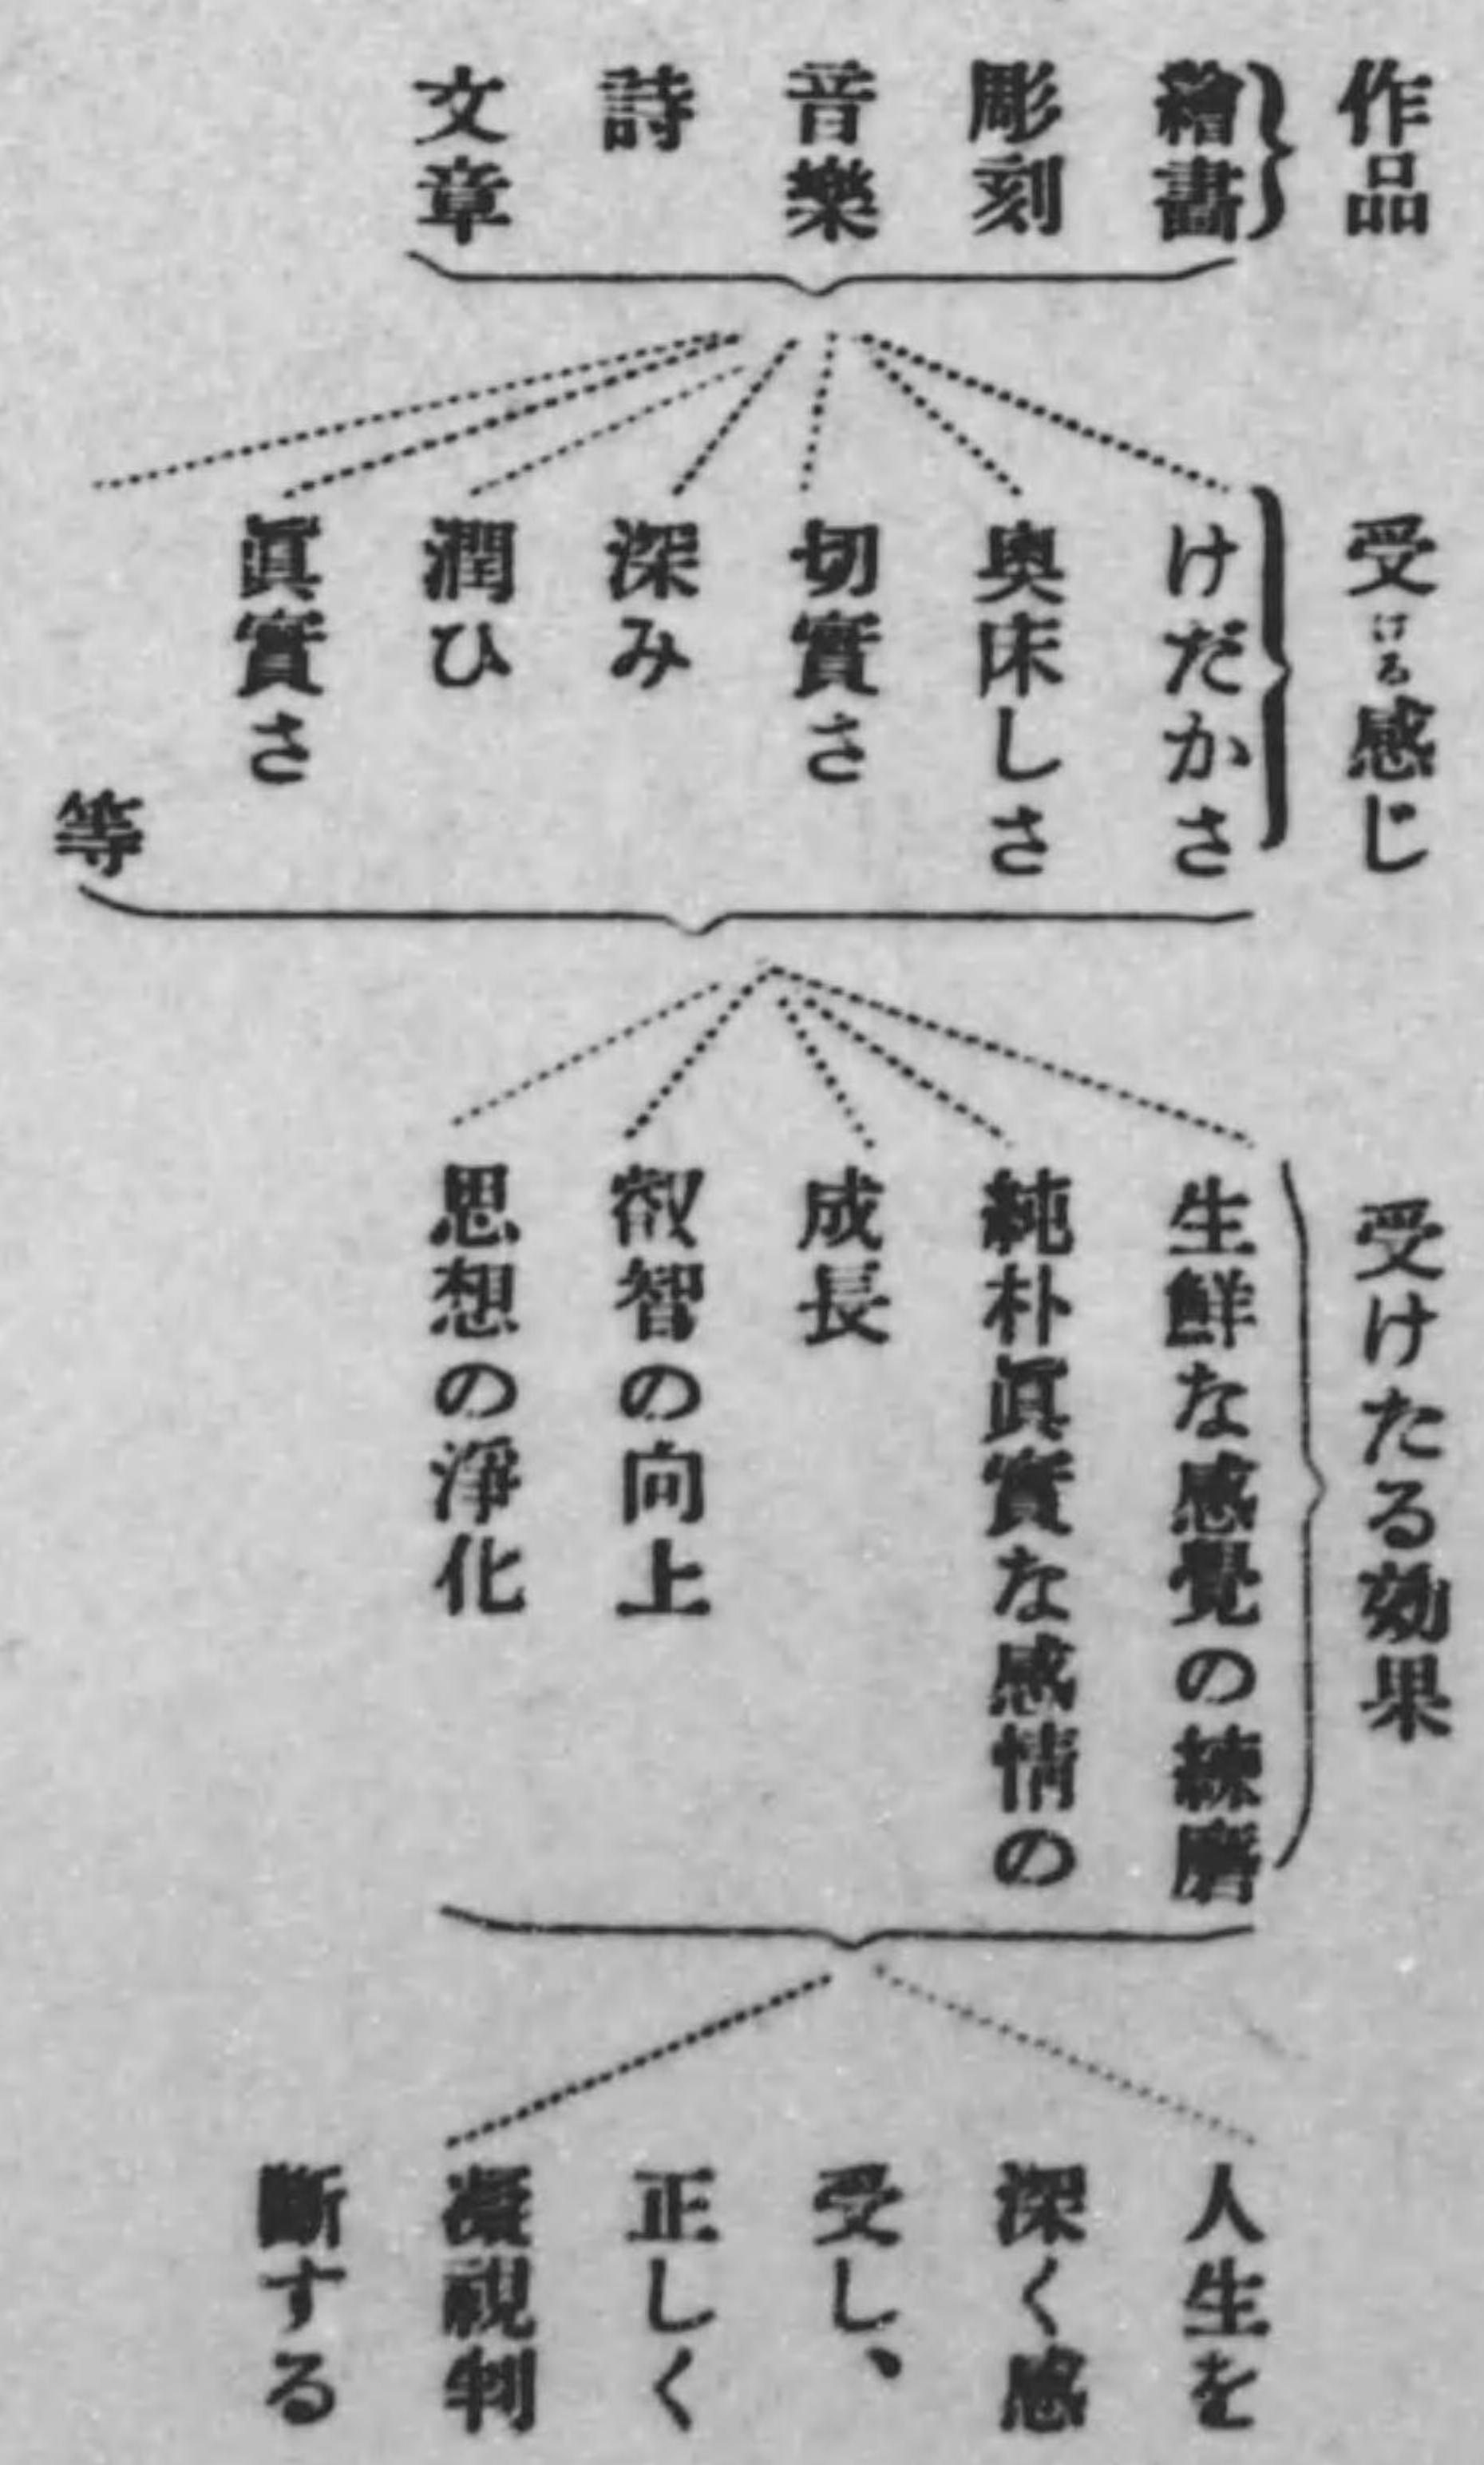 作品
繪畵
彫刻
音樂
詩
文章
受ける感じ
けだかさ
奥床しさ
切實さ
深み
潤ひ
眞實さ
等
受けたる効果
生鮮な感覺の練磨
純朴眞實な感情の
成長
叡智の向上
思想の淨化
人生を
深く感
受し、
正しく
凝視判
斷する